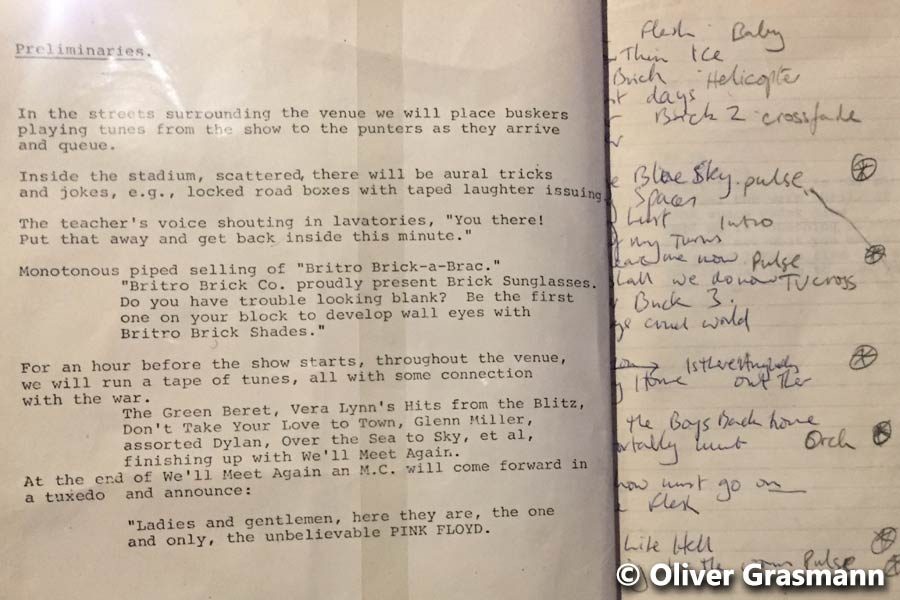 Preliminaries.
In the streets surrounding the venue we will place buskers
playing tunes from the show to the punters as they arrive
and queue.
Inside the stadium, scattered, there will be aural tricks
and jokes, e.g., locked road boxes with taped laughter issuing.
The teacher's voice shouting in lavatories, "You there!
Put that away and get back inside this minute."
Monotonous piped selling of "Britro Brick-a-Brac."
"Britro Brick Co. proudly present Brick Sunglasses.
Do you have trouble looking blank? Be the first
one on your block to develop wall eyes with
Britro Brick Shades."
For an hour before the show starts, throughout the venue,
we will run a tape of tunes, all with some connection
with the war.
The Green Beret, Vera Lynn's Hits from the Blitz,
Don't Take Your Love to Town, Glenn Miller,
assorted Dylan, Over the Sea to Sky, et al,
finishing up with We'll Meet Again.
At the end of We'll Meet Again an M.C. will come forward in
a tuxedo and announce:
"Ladies and gentlemen, here they are, the one
and only, the unbelievable PINK FLOYD.
Flesh Baby
Thin Ice
Brick Helicopter
days
Brick 2 crossfade
Blue Sky. pulse
Spaces
Lust Intro
my Turns
me now Pulse
we do now TV cross
Brick 3.
cruel world
Is there Anybody
Home out there
the Boys Back home
hunt Orch
must go on
Flesh
Like Hell
the Pulse
© Oliver Grasmann